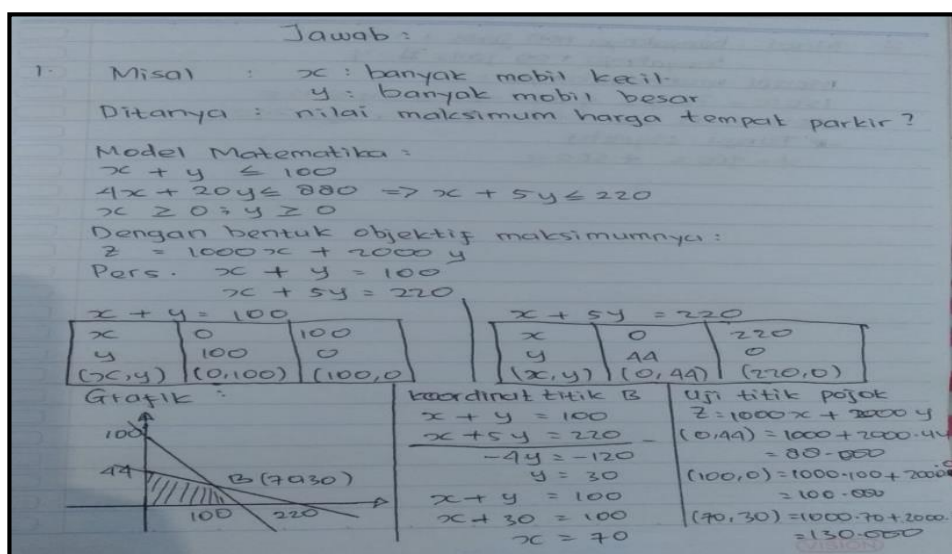 Jawab :
1. Misal : x : banyak mobil kecil.
y : banyak mobil besar
Ditanya : nilai maksimum harga tempat parkir ?
Model Matematika :
x + y ≤ 100
4x + 20y ≤ 880 => x + 5y ≤ 220
x ≥ 0 ; y ≥ 0
Dengan bentuk objektif maksimumnya :
z = 1000x + 2000y
Pers. x + y = 100
x + 5y = 220
x + y = 100
x 0 100
y 100 0
(x,y) (0,100) (100,0
x + 5y = 220
x 0 220
y 44 0
(x,y) (0,44) (220,0)
Grafik :
100
44
B (7030)
100 220
koordinat titik B
x + y = 100
x + 5y = 220 -
-4y = -120
y = 30
x + y = 100
x + 30 = 100
x = 70
Uji titik pojok
Z = 1000x + 2000y
(0,44) = 1000 + 2000.44
= 88.000
(100,0) = 1000.100 + 2000.0
= 100.000
(70,30) = 1000.70 + 2000.
= 130.000